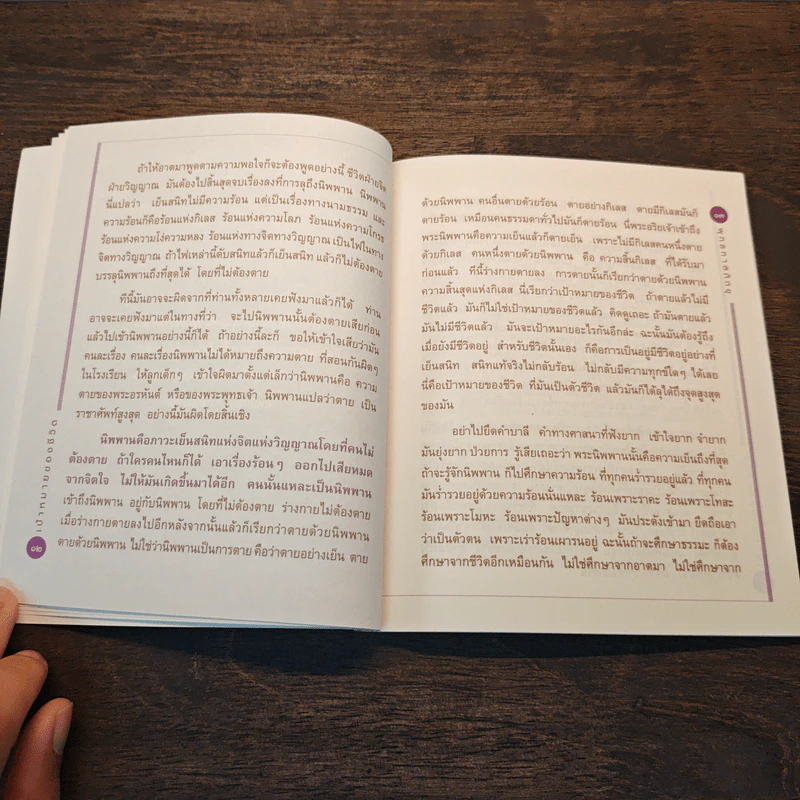 ถ้าให้อาตมาพูดตามความพอใจก็จะต้องพูดอย่างนี้ ชีวิตฝ่ายจิต
ฝ่ายวิญญาณ มันต้องไปสิ้นสุดจบเรื่องลงที่การลุถึงนิพพาน นิพพาน
นี่แปลว่า เย็นสนิทไม่มีความร้อน แต่เป็นเรื่องทางนามธรรม และ
ความร้อนก็คือร้อนแห่งกิเลส ร้อนแห่งความโลภ ร้อนแห่งความโกรธ
ร้อนแห่งความโง่ความหลง ร้อนแห่งทางจิตทางวิญญาณ เป็นไฟในทาง
จิตทางวิญญาณ ถ้าไฟเหล่านี้ดับสนิทแล้วก็เย็นสนิท แล้วก็ไม่ต้องตาย
บรรลุนิพพานถึงที่สุดได้ โดยที่ไม่ต้องตาย
ทีนี้มันอาจจะผิดจากที่ท่านทั้งหลายเคยฟังมาแล้วก็ได้ ท่าน
อาจจะเคยฟังมาแต่ในทางที่ว่า จะไปนิพพานนั้นต้องตายเสียก่อน
แล้วไปเข้านิพพานอย่างนี้ก็ได้ ถ้าอย่างนี้ละก็ ขอให้เข้าใจเสียว่ามัน
คนละเรื่อง คนละเรื่องนิพพานไม่ได้หมายถึงความตาย ที่สอนกันผิดๆ
ในโรงเรียน ให้ลูกเด็กๆ เข้าใจผิดมาตั้งแต่เล็กว่านิพพานคือ ความ
ตายของพระอรหันต์ หรือของพระพุทธเจ้า นิพพานแปลว่าตาย เป็น
ราชาศัพท์สูงสุด อย่างนี้มันผิดโดยสิ้นเชิง
นิพพานคือภาวะเย็นสนิทแห่งจิตแห่งวิญญาณโดยที่คนไม่
ต้องตาย ถ้าใครคนไหนก็ได้ เอาเรื่องร้อนๆ ออกไปเสียหมด
จากจิตใจ ไม่ให้มันเกิดขึ้นมาได้อีก คนนั้นแหละเป็นนิพพาน
เข้าถึงนิพพาน อยู่กับนิพพาน โดยที่ไม่ต้องตาย ร่างกายไม่ต้องตาย
เมื่อร่างกายตายลงไปอีกหลังจากนั้นแล้วก็เรียกว่าตายด้วยนิพพาน
ตายด้วยนิพพาน ไม่ใช่ว่านิพพานเป็นการตาย คือว่าตายอย่างเย็น ตาย
เป้าหมายของชีวิต
๑๒
ด้วยนิพพาน คนอื่นตายด้วยร้อน ตายอย่างกิเลส ตายมีกิเลสมันก็
ตายร้อน เหมือนคนธรรมดาทั่วไปมันก็ตายร้อน นี่พระอริยเจ้าเข้าถึง
พระนิพพานคือความเย็นแล้วก็ตายเย็น เพราะไม่มีกิเลสคนหนึ่งตาย
ด้วยกิเลส คนหนึ่งตายด้วยนิพพาน คือ ความสิ้นกิเลส ที่ได้รับมา
ก่อนแล้ว ทีนี้ร่างกายตายลง การตายนั้นก็เรียกว่าตายด้วยนิพพาน
ความสิ้นสุดแห่งกิเลส นี่เรียกว่าเป้าหมายของชีวิต ถ้าตายแล้วไม่มี
ชีวิตแล้ว มันก็ไม่ใช่เป้าหมายของชีวิตแล้ว คิดดูเถอะ ถ้ามันตายแล้ว
มันไม่มีชีวิตแล้ว มันจะเป้าหมายอะไรกันอีกล่ะ ฉะนั้นมันต้องรู้ถึง
เมื่อยังมีชีวิตอยู่ สำหรับชีวิตนั้นเอง ก็คือการเป็นอยู่มีชีวิตอยู่อย่างที่
เย็นสนิท สนิทแท้จริงไม่กลับร้อน ไม่กลับมีความทุกข์ใดๆ ได้เลย
นี่คือเป้าหมายของชีวิต ที่มันเป็นตัวชีวิต แล้วมันก็ได้ลุได้ถึงจุดสูงสุด
ของมัน
อย่าไปยึดคำบาลี คำทางศาสนาที่ฟังยาก เข้าใจยาก จำยาก
มันยุ่งยาก ป่วยการ รู้เสียเถอะว่า พระนิพพานนั้นคือความเย็นถึงที่สุด
ถ้าจะรู้จักนิพพาน ก็ไปศึกษาความร้อน ที่ทุกคนร่ำรวยอยู่แล้ว ที่ทุกคน
มันร่ำรวยอยู่ด้วยความร้อนนั่นแหละ ร้อนเพราะราคะ ร้อนเพราะโทสะ
ร้อนเพราะโมหะ ร้อนเพราะปัญหาต่างๆ มันประดังเข้ามา ยึดถือเอา
ว่าเป็นตัวตน เพราะเร่าร้อนเผารนอยู่ ฉะนั้นถ้าจะศึกษาธรรมะ ก็ต้อง
ศึกษาจากชีวิตอีกเหมือนกัน ไม่ใช่ศึกษาจากอาตมา ไม่ใช่ศึกษาจาก
๑๓
พุทธทาสภิกขุ